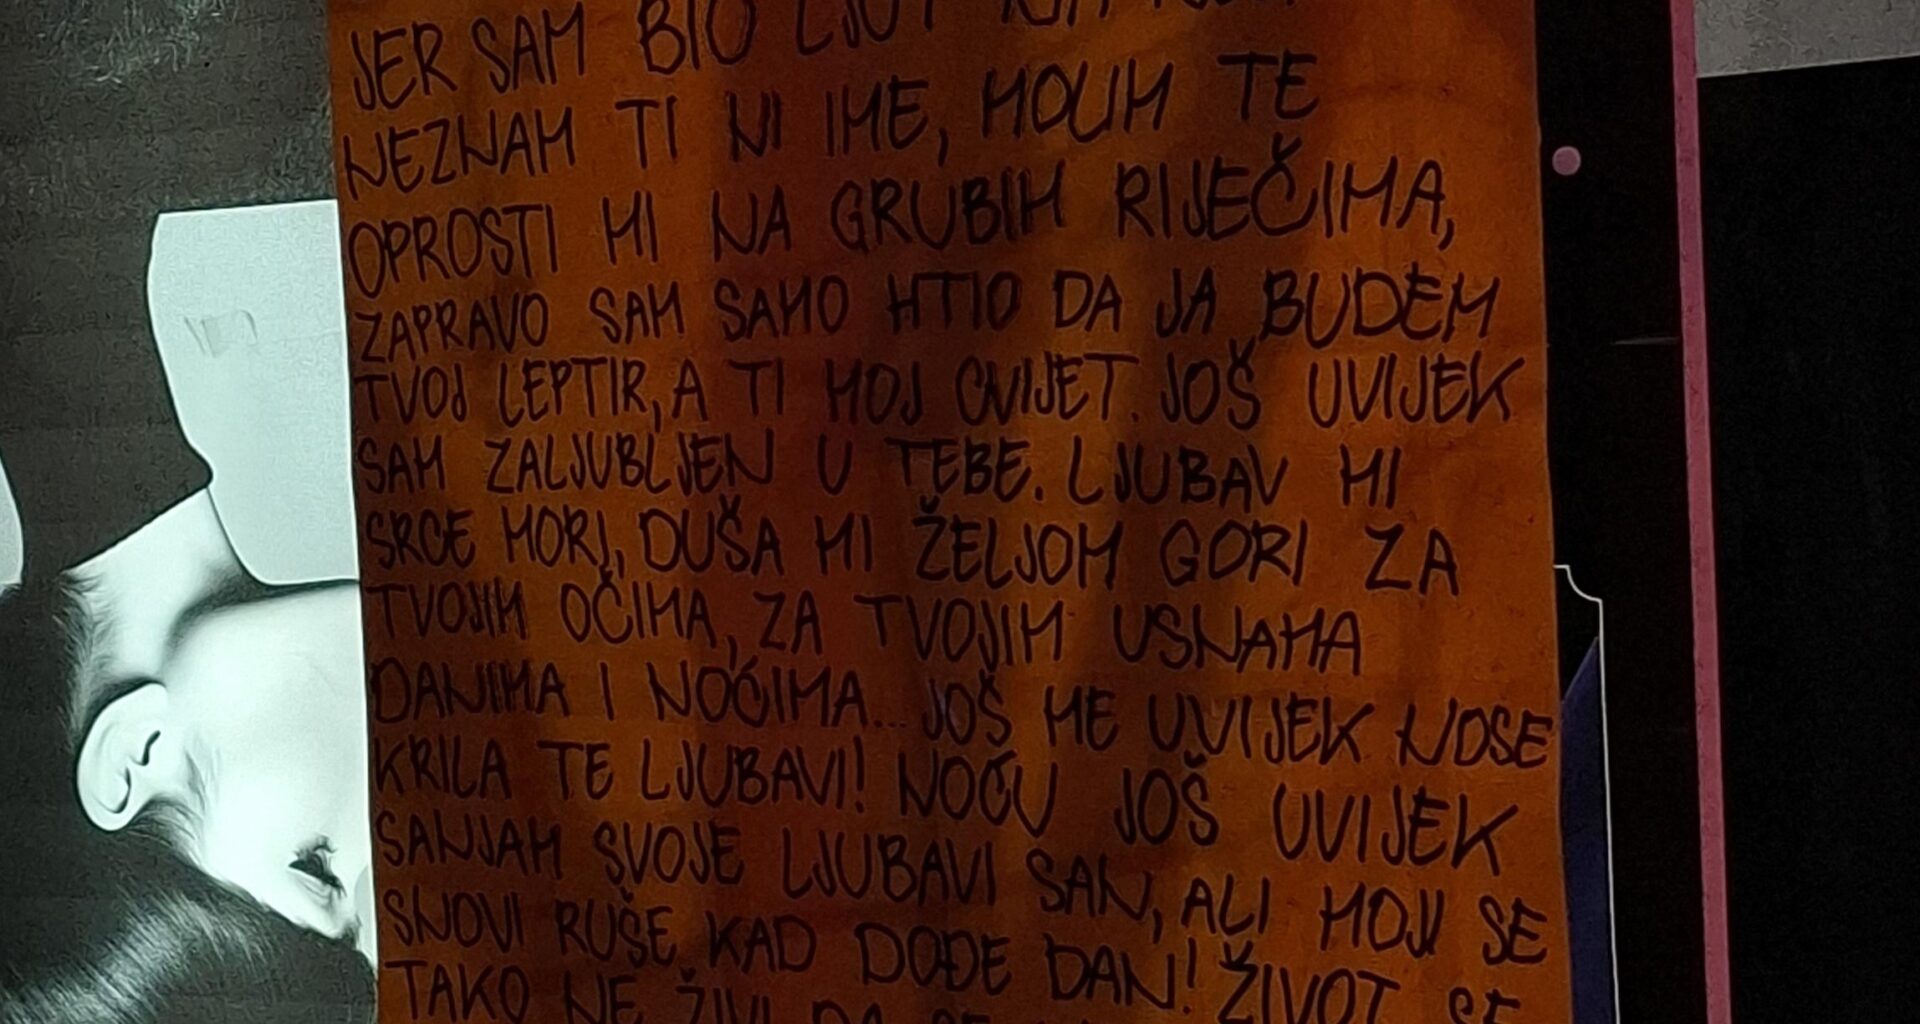 JER SAM BIO LJUT
NEZNAM TI NI IME, MOLIM TE
OPROSTI MI NA GRUBIM RIJEČIMA,
ZAPRAVO SAM SAMO HTIO DA JA BUDEM
TVOJ LEPTIR, A TI MOJ CVIJET. JOŠ UVIJEK
SAM ZALJUBLJEN U TEBE. LJUBAV MI
SRCE MORI, DUŠA MI ŽELJOM GORI ZA
TVOJIM OČIMA, ZA TVOJIM USNAMA
DANIMA I NOĆIMA... JOŠ ME UVIJEK NOSE
KRILA TE LJUBAVI! NOĆU JOŠ UVIJEK
SANJAM SVOJE LJUBAVI SAN, ALI MOJI SE
SNOVI RUŠE KAD DOĐE DAN! ŽIVOT SE
TAKO NE ŽIVI DA SE